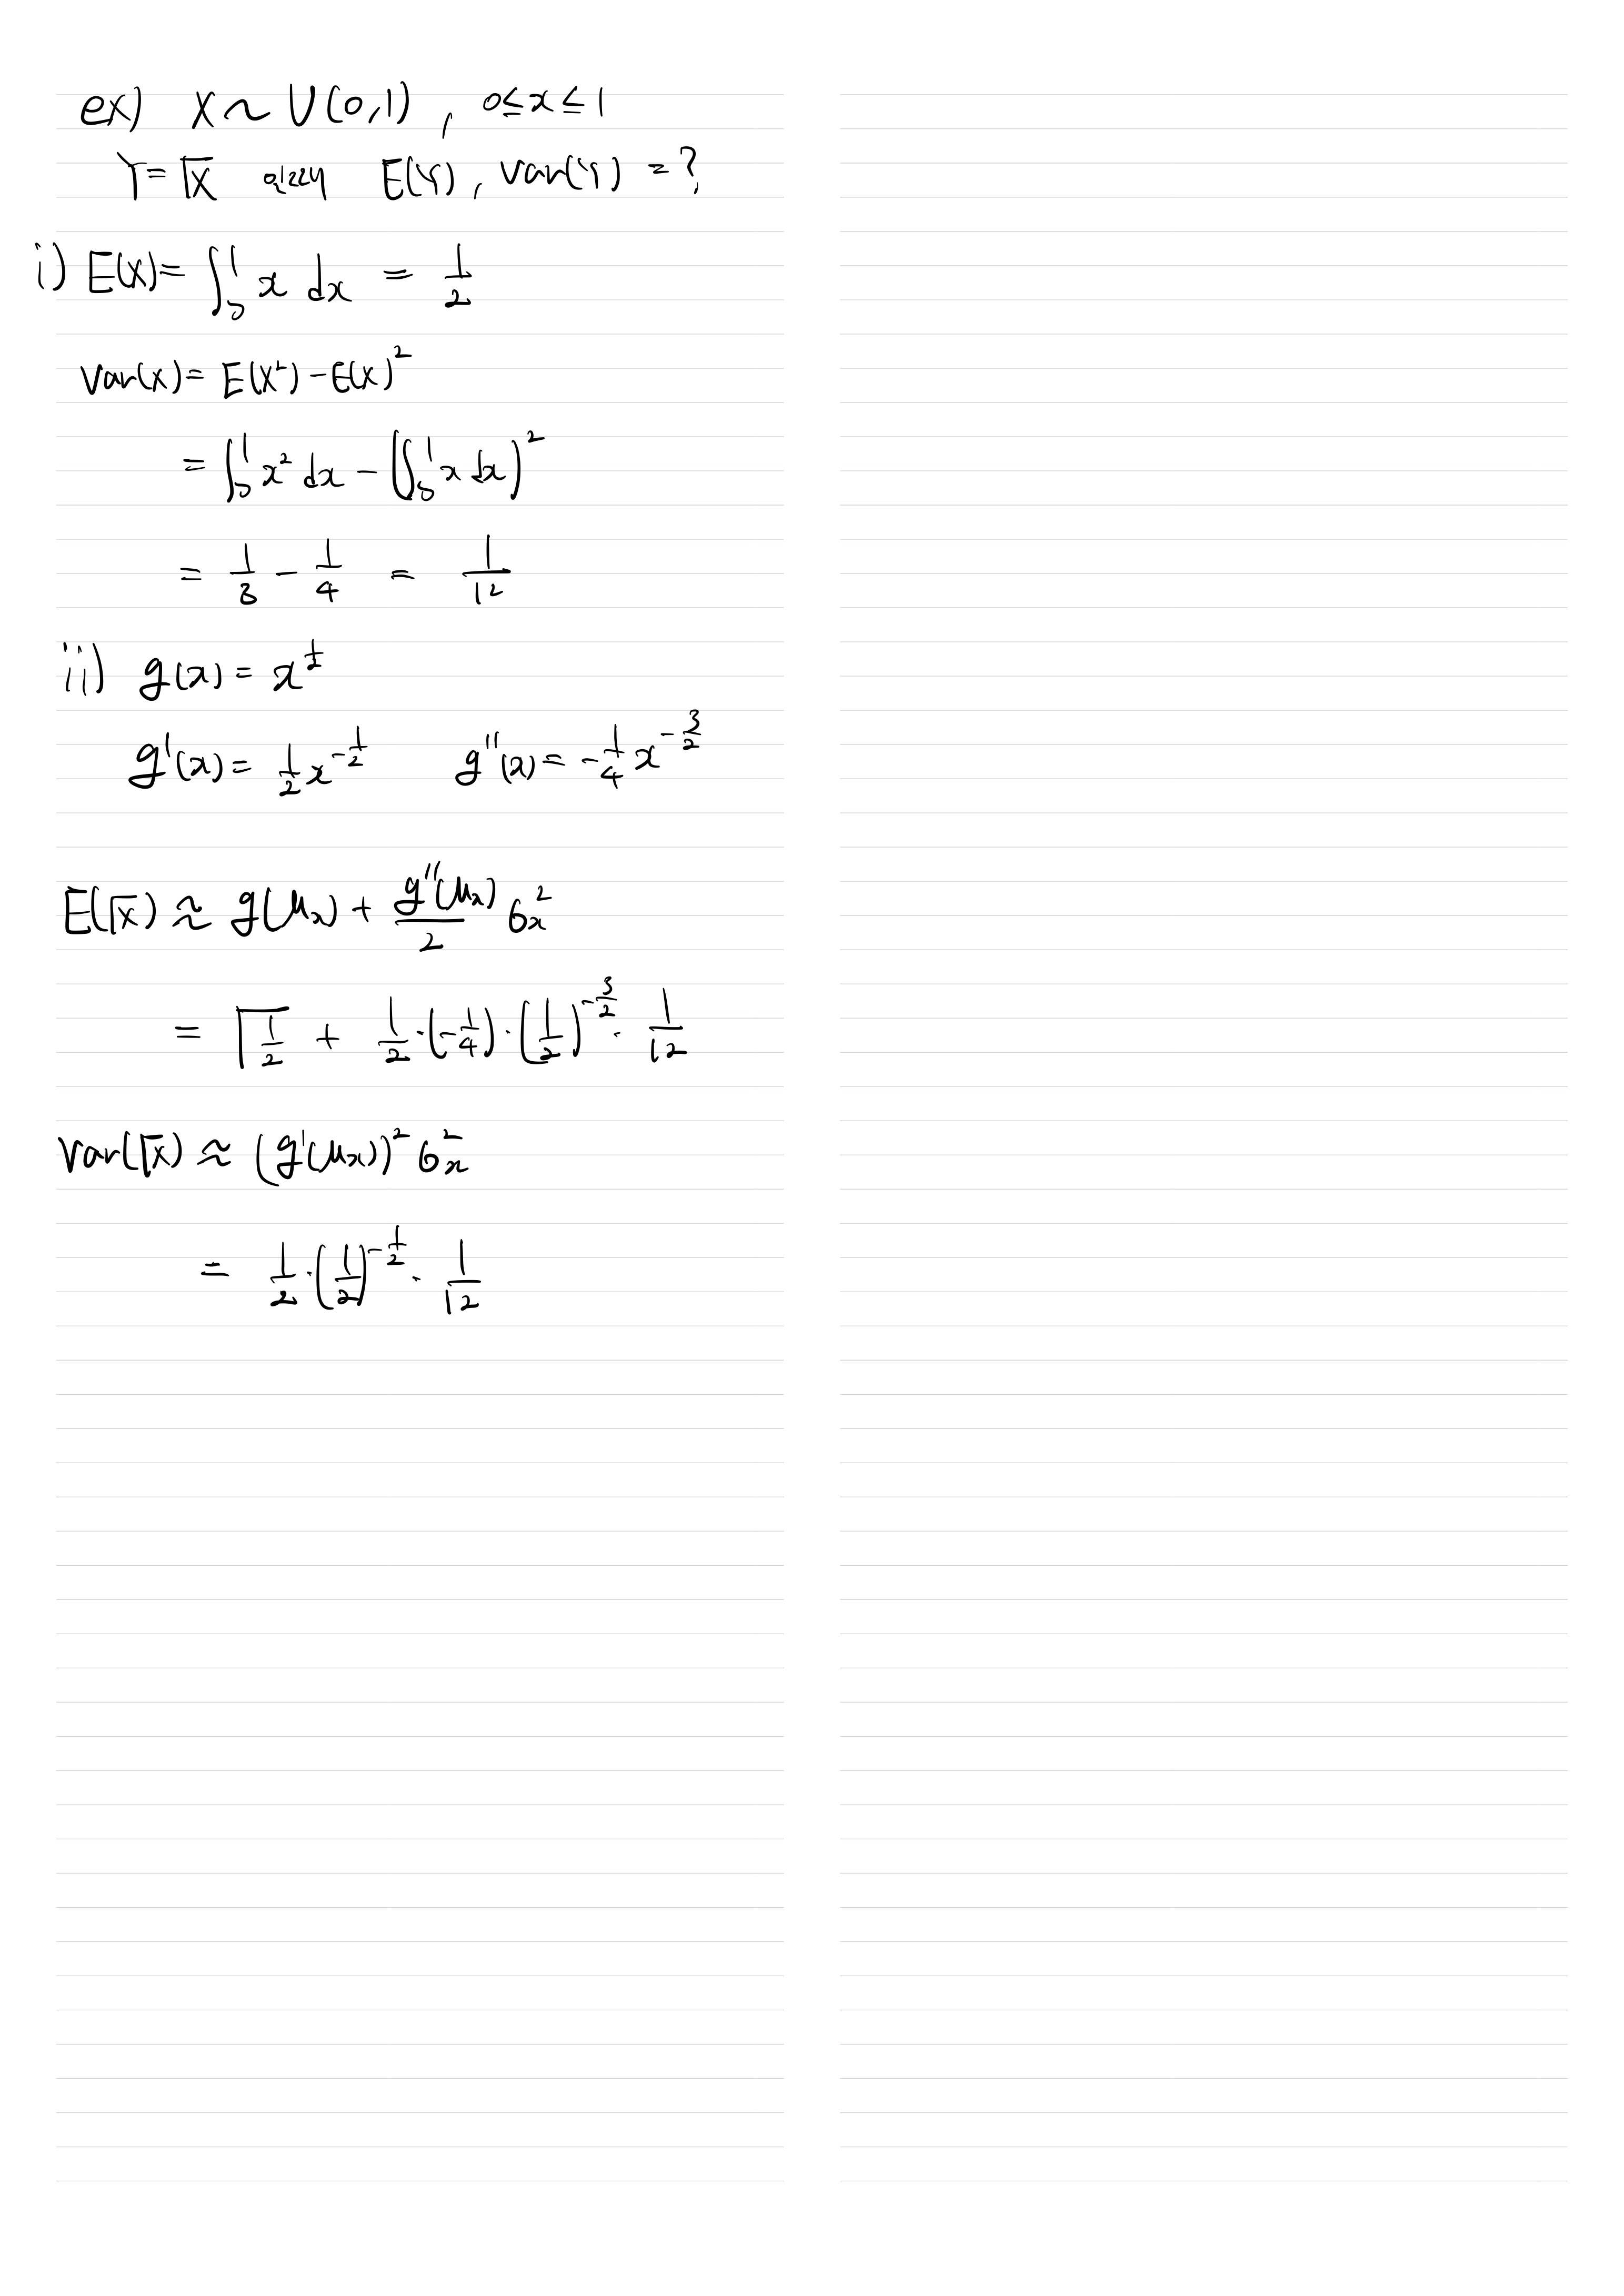 ex) X ~ U(0,1) , 0≤x≤1
Y=√X 일때 E(Y), Var(Y) = ?
i) E(X) = ∫₀¹ x dx = 1/2
Var(X) = E(X²) - E(X)²
= ∫₀¹ x² dx - (∫₀¹ x dx)²
= 1/3 - 1/4 = 1/12
ii) g(x) = x^(1/2)
g'(x) = 1/2 x^(-1/2) g''(x) = -1/4 x^(-3/2)
E(√X) ≈ g(μₓ) + g''(μₓ)/2 σₓ²
= √(1/2) + 1/2 · (-1/4) · (1/2)^(-3/2) · 1/12
Var(√X) ≈ (g'(μₓ))² σₓ²
= 1/2 · (1/2)^(-1/2) · 1/12